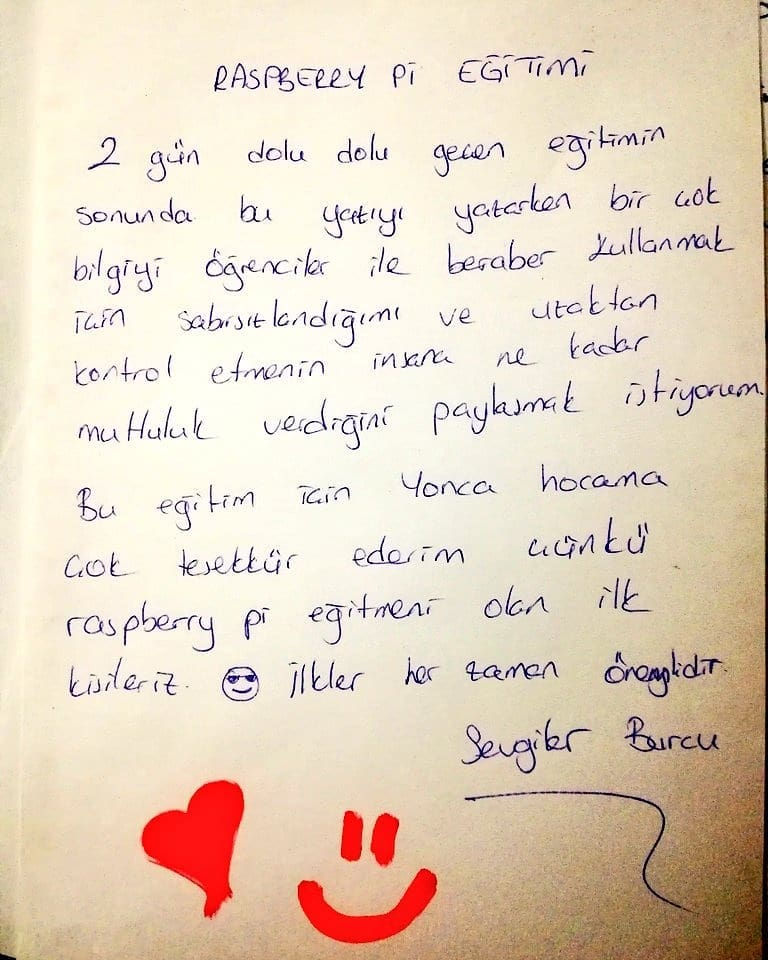 RASPBERRY Pİ EĞİTİMİ
2 gün dolu dolu geçen eğitimin
sonunda bu yazıyı yazarken bir çok
bilgiyi öğrenciler ile beraber kullanmak
için sabırsızlandığımı ve uzaktan
kontrol etmenin insana ne kadar
mutluluk verdiğini paylaşmak istiyorum.
Bu eğitim için Yonca hocama
çok teşekkür ederim çünkü
raspberry pi eğitmeni olan ilk
kişileriz. 😎 İlkler her zaman önemlidir.
Sevgiler Burcu